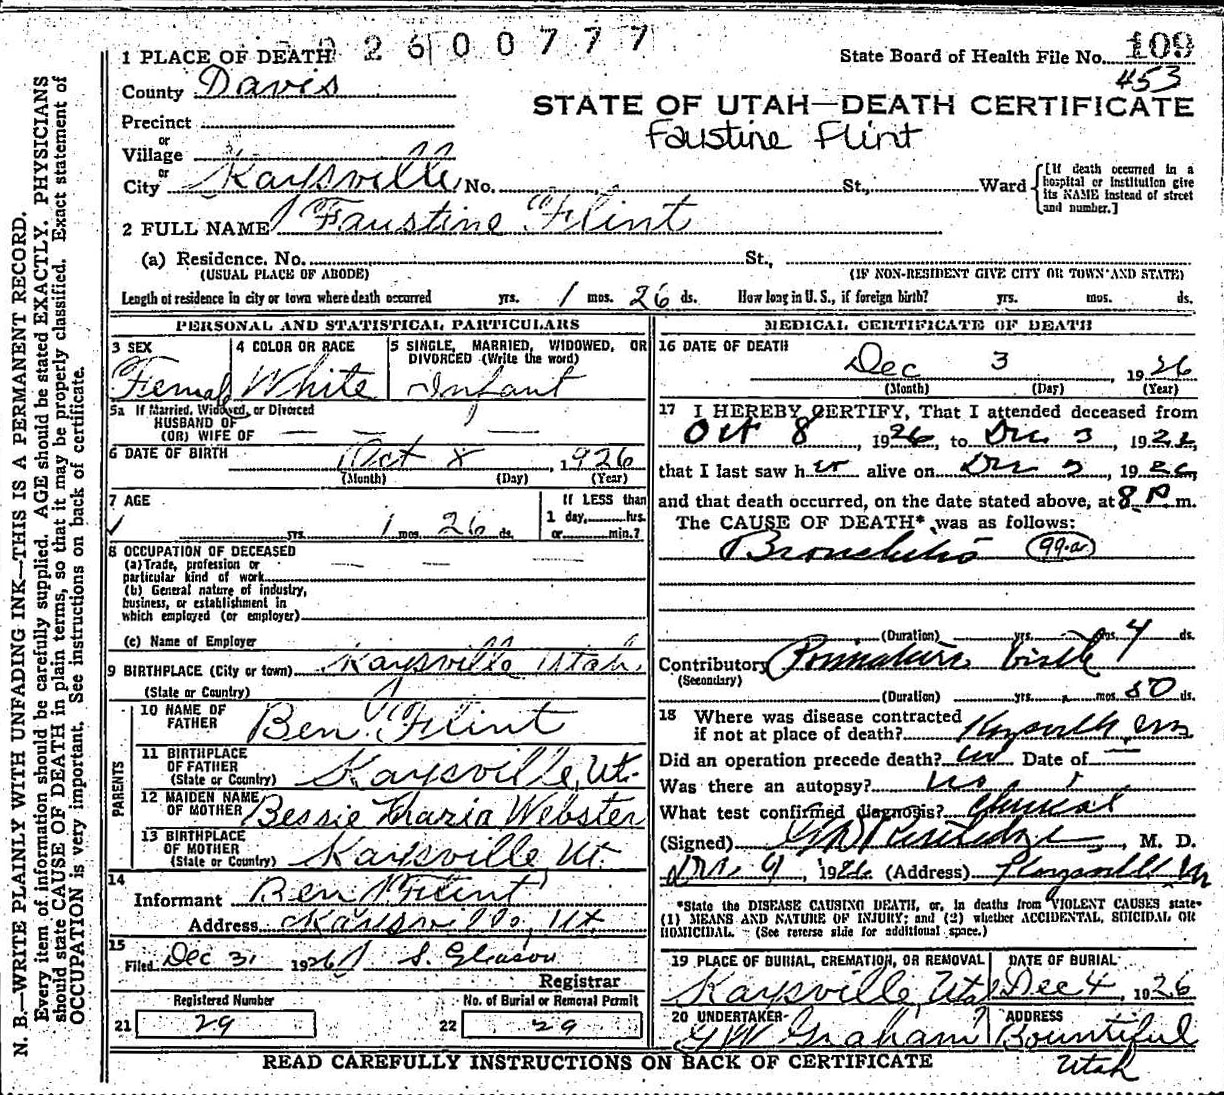 2600777
1 PLACE OF DEATH
State Board of Health File No. 109
453
County Davis
STATE OF UTAH—DEATH CERTIFICATE
Faustine Flint
Precinct
or
Village
or
City Kaysville No. St., Ward
[If death occurred in a hospital or institution give its NAME instead of street and number.]
2 FULL NAME Faustine Flint
(a) Residence. No. St.,
(USUAL PLACE OF ABODE) (IF NON-RESIDENT GIVE CITY OR TOWN AND STATE)
Length of residence in city or town where death occurred yrs. 1 mos. 26 ds. How long in U. S., if foreign birth? yrs. mos. ds.
PERSONAL AND STATISTICAL PARTICULARS
3 SEX
Female
4 COLOR OR RACE
White
5 SINGLE, MARRIED, WIDOWED, OR DIVORCED (Write the word)
Infant
5a If Married, Widowed, or Divorced
HUSBAND OF
(OR) WIFE OF — — —
6 DATE OF BIRTH Oct 8, 1926
(Month) (Day) (Year)
7 AGE
yrs. 1 mos. 26 ds.
If LESS than
1 day, hrs.
or min.?
8 OCCUPATION OF DECEASED
(a) Trade, profession or
particular kind of work
(b) General nature of industry,
business, or establishment in
which employed (or employer)
(c) Name of Employer
9 BIRTHPLACE (City or town) Kaysville Utah
(State or Country)
PARENTS
10 NAME OF FATHER Ben Flint
11 BIRTHPLACE OF FATHER
(State or Country) Kaysville, Ut.
12 MAIDEN NAME OF MOTHER Bessie Webster
13 BIRTHPLACE OF MOTHER
(State or Country) Kaysville, Ut.
14
Informant Ben Flint
Address Kaysville, Ut.
15
Filed Dec 31 1926 S. Gleason
Registrar
Registered Number
21 29
No. of Burial or Removal Permit
22 29
MEDICAL CERTIFICATE OF DEATH
16 DATE OF DEATH
Dec 3, 1926
(Month) (Day) (Year)
17 I HEREBY CERTIFY, That I attended deceased from
Oct 8, 1926, to Dec 3, 192
that I last saw her alive on Dec 1926,
and that death occurred, on the date stated above, at 8 P. m.
The CAUSE OF DEATH* was as follows:
Bronchitis 99-a
(Duration) yrs. mos. 4 ds.
Contributory Premature birth
(Secondary)
(Duration) yrs. mos. 50 ds.
18 Where was disease contracted
if not at place of death? Kaysville
Did an operation precede death? no Date of —
Was there an autopsy? no
What test confirmed diagnosis? Clinical
(Signed) , M. D.
Dec 4, 1926 (Address) Kaysville Ut
*State the DISEASE CAUSING DEATH, or, in deaths from VIOLENT CAUSES state
(1) MEANS AND NATURE OF INJURY; and (2) whether ACCIDENTAL, SUICIDAL OR
HOMICIDAL. (See reverse side for additional space.)
19 PLACE OF BURIAL, CREMATION, OR REMOVAL
Kaysville, Utah
DATE OF BURIAL
Dec 4, 1926
20 UNDERTAKER
GW Graham
ADDRESS
Bountiful
Utah
READ CAREFULLY INSTRUCTIONS ON BACK OF CERTIFICATE
N. B.—WRITE PLAINLY WITH UNFADING INK—THIS IS A PERMANENT RECORD.
Every item of information should be carefully supplied. AGE should be stated EXACTLY. PHYSICIANS
should state CAUSE OF DEATH in plain terms, so that it may be properly classified. Exact statement of
OCCUPATION is very important. See instructions on back of certificate.